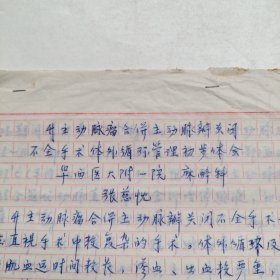 升主动脉瘤合併主动脉瓣关闭
不全手术体外循环管理初步体会
华西医大附一院 麻醉科
张慈恍
升主动脉瘤合併主动脉瓣关闭不全手术
直视手术中较复杂的手术，体外循环
血运时间较长，渗血、出血较严重